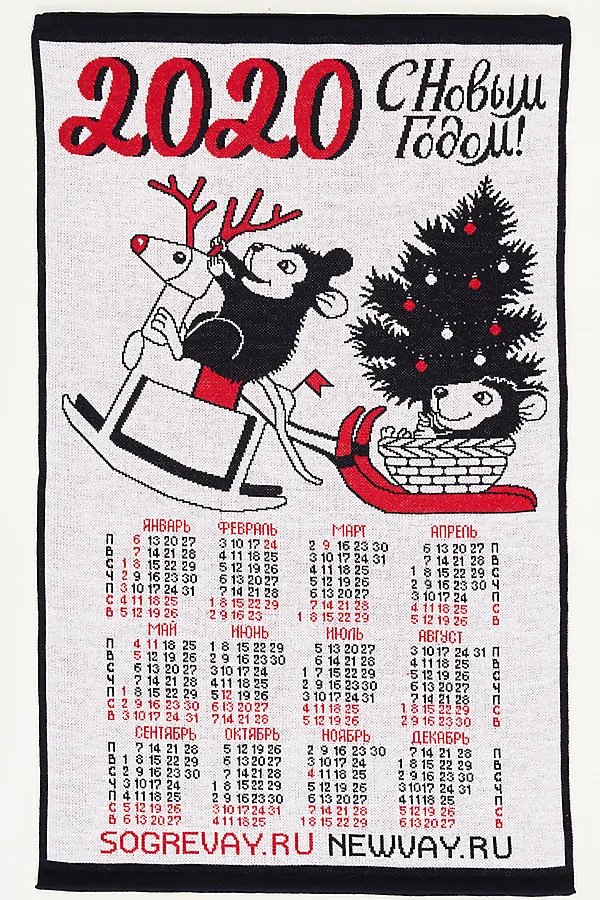 2020 С Новым
Годом!
ЯНВАРЬ ФЕВРАЛЬ МАРТ АПРЕЛЬ
П 6 13 20 27 3 10 17 24 2 9 16 23 30 6 13 20 27 П
В 7 14 21 28 4 11 18 25 3 10 17 24 31 7 14 21 28 В
С 1 8 15 22 29 5 12 19 26 4 11 18 25 1 8 15 22 29 С
Ч 2 9 16 23 30 6 13 20 27 5 12 19 26 2 9 16 23 30 Ч
П 3 10 17 24 31 7 14 21 28 6 13 20 27 3 10 17 24 П
С 4 11 18 25 1 8 15 22 29 7 14 21 28 4 11 18 25 С
В 5 12 19 26 2 9 16 23 1 8 15 22 29 5 12 19 26 В
МАЙ ИЮНЬ ИЮЛЬ АВГУСТ
П 4 11 18 25 1 8 15 22 29 5 13 20 27 3 10 17 24 31 П
В 5 12 19 26 2 9 16 23 30 6 14 21 28 4 11 18 25 В
С 6 13 20 27 3 10 17 24 1 7 15 22 29 5 12 19 26 С
Ч 7 14 21 28 4 11 18 25 2 9 16 23 30 6 13 20 27 Ч
П 1 8 15 22 29 5 12 19 26 3 10 17 24 31 7 14 21 28 П
С 2 9 16 23 30 6 13 20 27 4 11 18 25 1 8 15 22 29 С
В 3 10 17 24 31 7 14 21 28 5 12 19 26 2 9 16 23 30 В
СЕНТЯБРЬ ОКТЯБРЬ НОЯБРЬ ДЕКАБРЬ
П 7 14 21 28 5 12 19 26 2 9 16 23 30 7 14 21 28 П
В 1 8 15 22 29 6 13 20 27 3 10 17 24 1 8 15 22 29 В
С 2 9 16 23 30 7 14 21 28 4 11 18 25 2 9 16 23 30 С
Ч 3 10 17 24 1 8 15 22 29 5 12 19 26 3 10 17 24 31 Ч
П 4 11 18 25 2 9 16 23 30 6 13 20 27 4 11 18 25 П
С 5 12 19 26 3 10 17 24 31 7 14 21 28 5 12 19 26 С
В 6 13 20 27 4 11 18 25 1 8 15 22 29 6 13 20 27 В
SOGREVAY.RU NEWVAY.RU